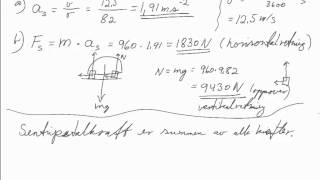 a) a_s = v²/r = 12,5²/82 = 1,91 ms⁻²
3600 s
= 12,5 m/s
b) F_s = m · a_s = 960 · 1.91 = 1830 N (horisontal retning)
N
N = mg = 960·9.82
= 9430 N (oppover)
mg
vertikal retning
Sentripetalkraft er summen av alle krefter.